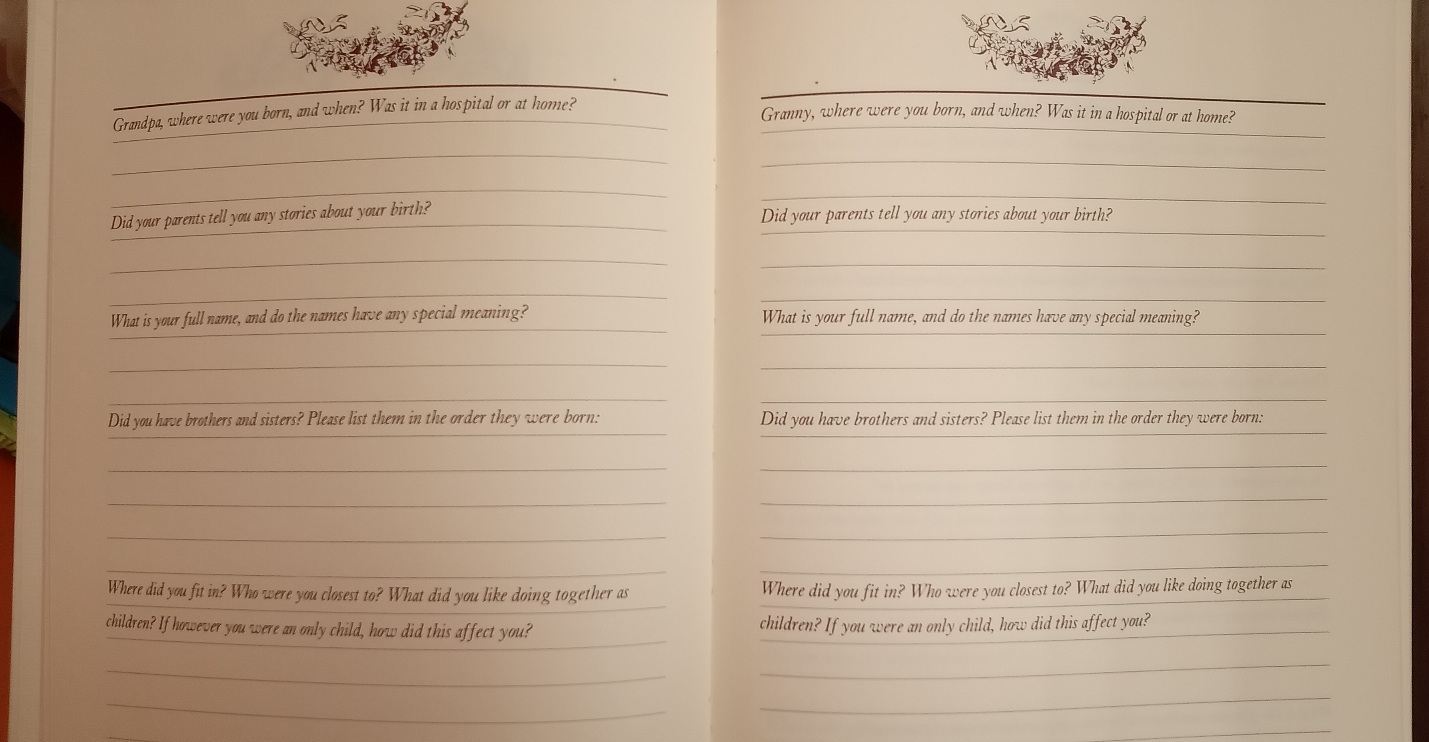 Grandpa, where were you born, and when? Was it in a hospital or at home?
Did your parents tell you any stories about your birth?
What is your full name, and do the names have any special meaning?
Did you have brothers and sisters? Please list them in the order they were born:
Where did you fit in? Who were you closest to? What did you like doing together as
children? If however you were an only child, how did this affect you?
Granny, where were you born, and when? Was it in a hospital or at home?
Did your parents tell you any stories about your birth?
What is your full name, and do the names have any special meaning?
Did you have brothers and sisters? Please list them in the order they were born:
Where did you fit in? Who were you closest to? What did you like doing together as
children? If you were an only child, how did this affect you?